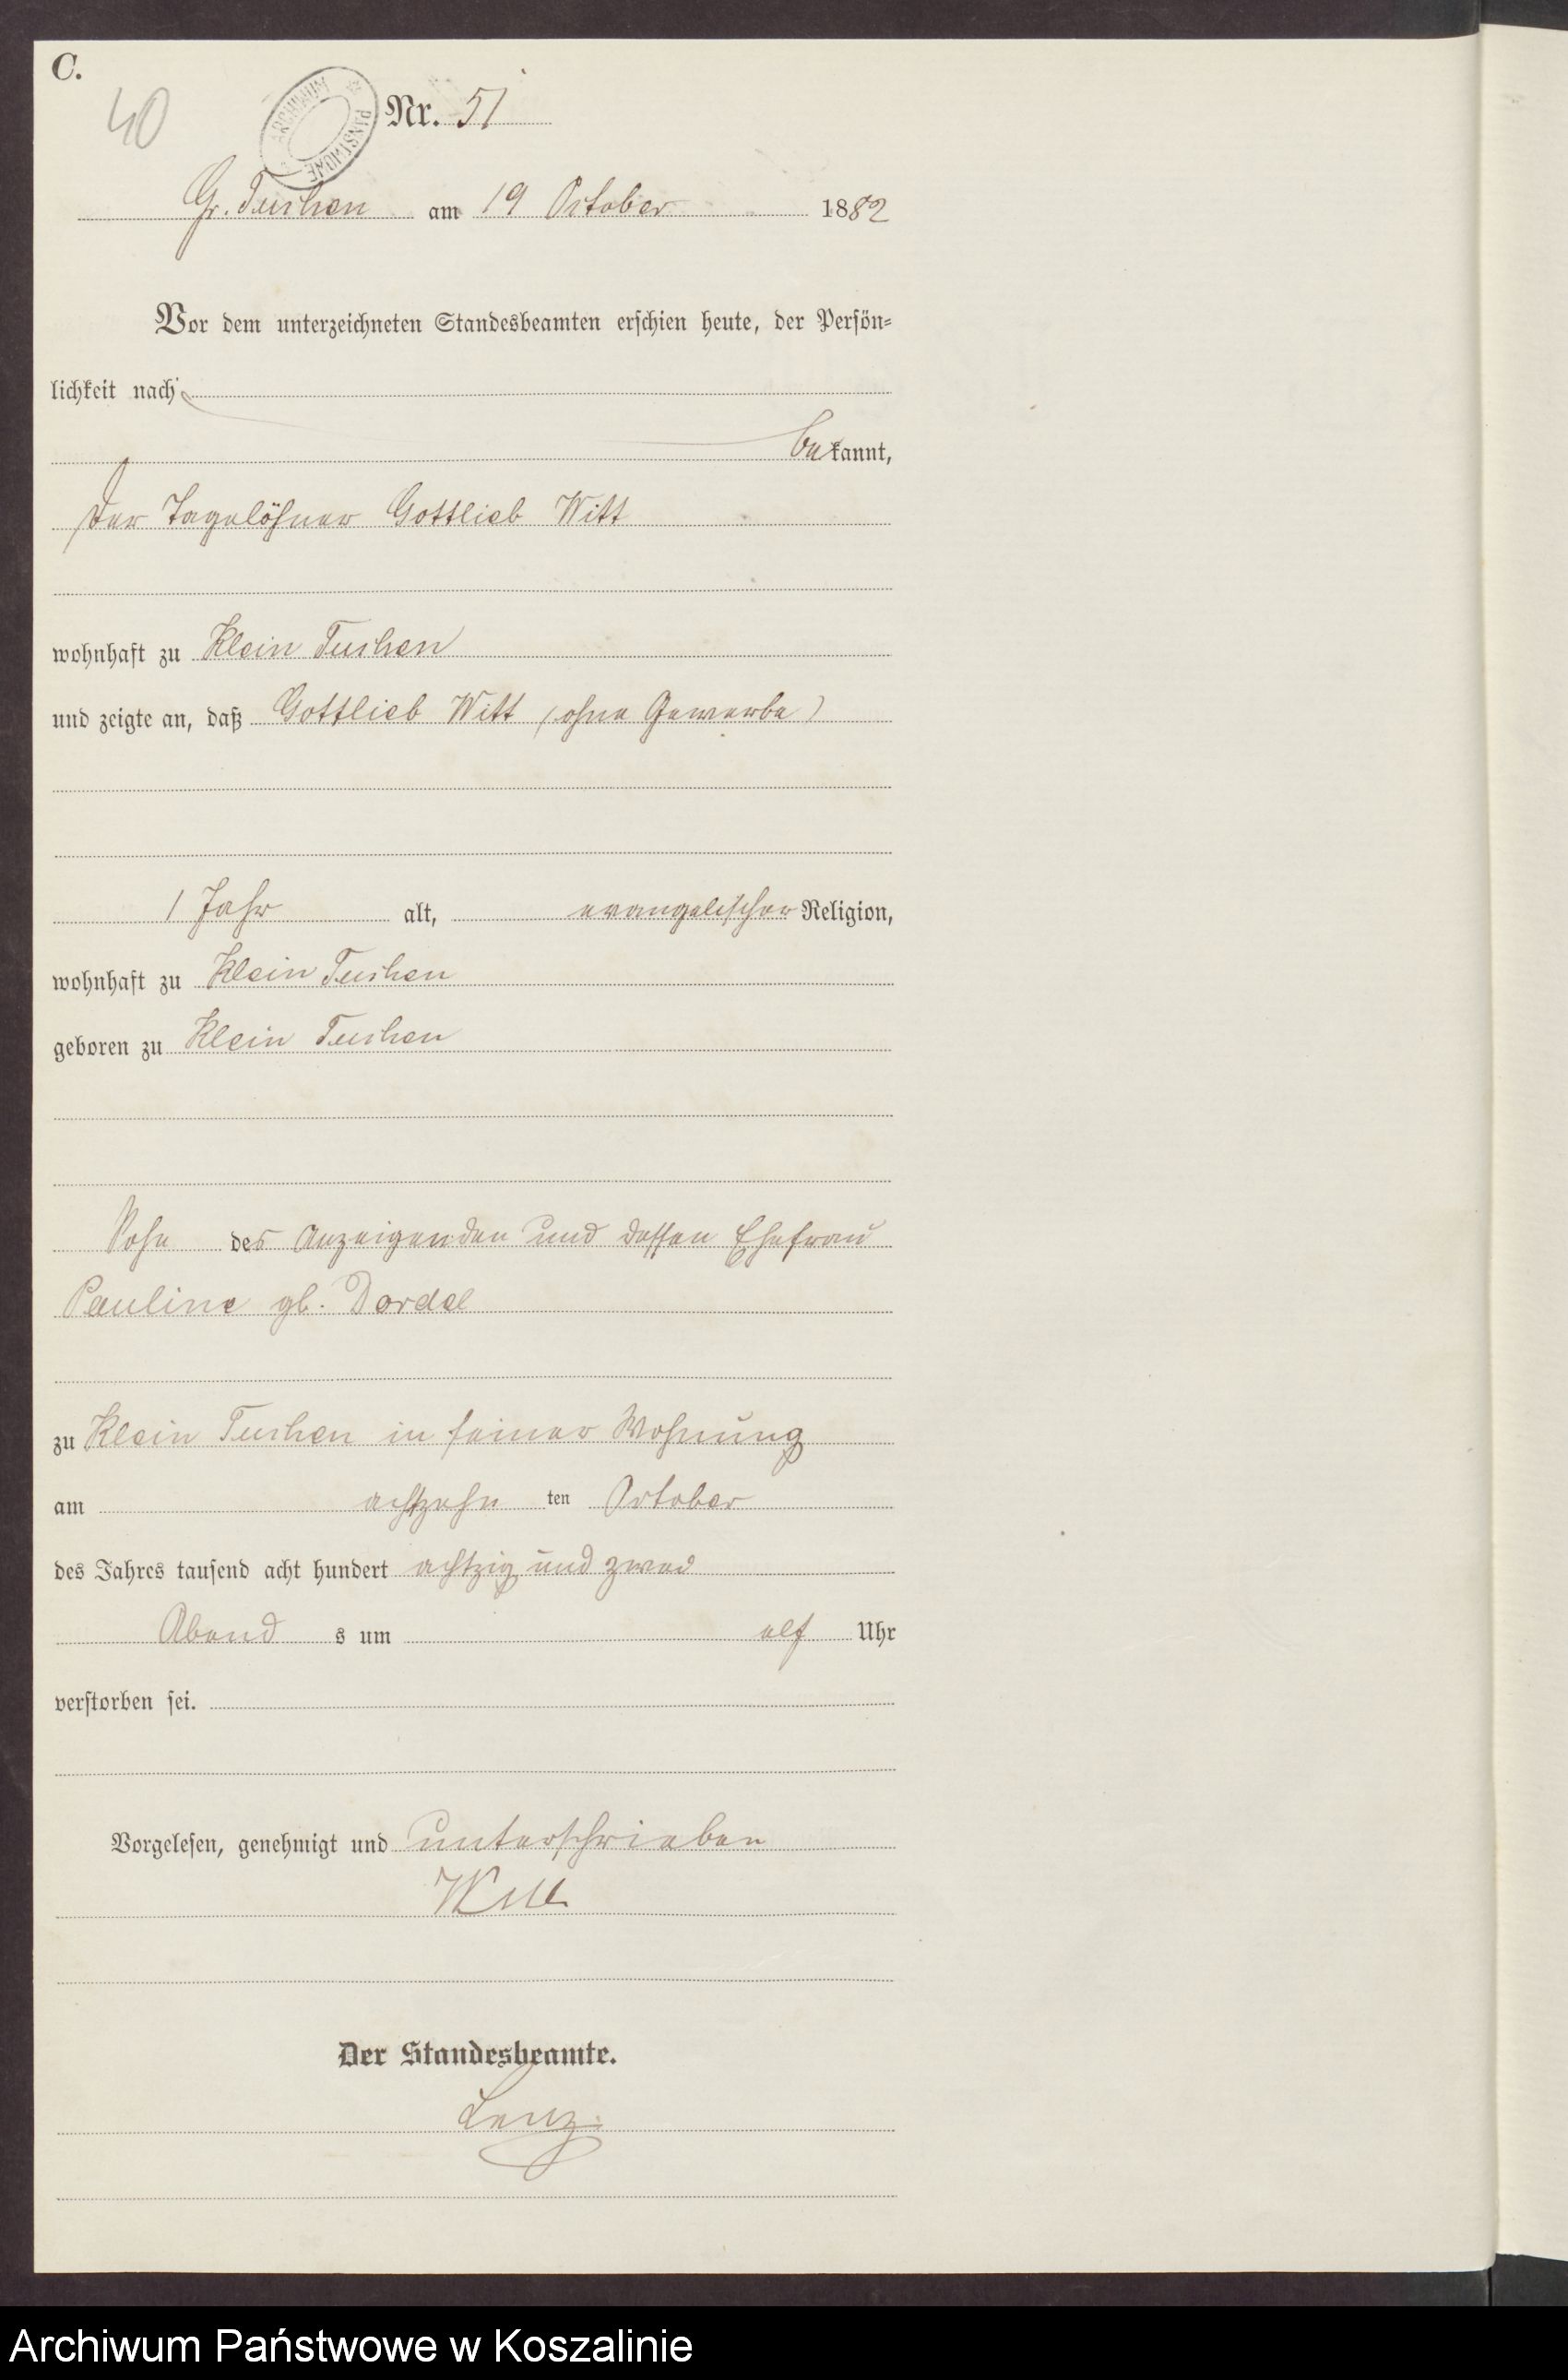 C.
40
ARCHIWUM PAŃSTWOWE
Nr. 51
Gr. Tuchen am 19 October 1882
Vor dem unterzeichneten Standesbeamten erschien heute, der Persön-
lichkeit nach
bekannt,
der Tagelöhner Gottlieb Witt
wohnhaft zu Klein Tuchen
und zeigte an, daß Gottlieb Witt (ohne Gewerbe)
1 Jahr alt, evangelischer Religion,
wohnhaft zu Klein Tuchen
geboren zu Klein Tuchen
Sohn des Anzeigenden und dessen Ehefrau
Pauline gb. Dordel
zu Klein Tuchen in seiner Wohnung
am achtzehn ten October
des Jahres tausend acht hundert achtzig und zwei
Abend s um elf Uhr
verstorben sei.
Vorgelesen, genehmigt und unterschrieben
Witt
Der Standesbeamte.
Lenz.
Archiwum Państwowe w Koszalinie